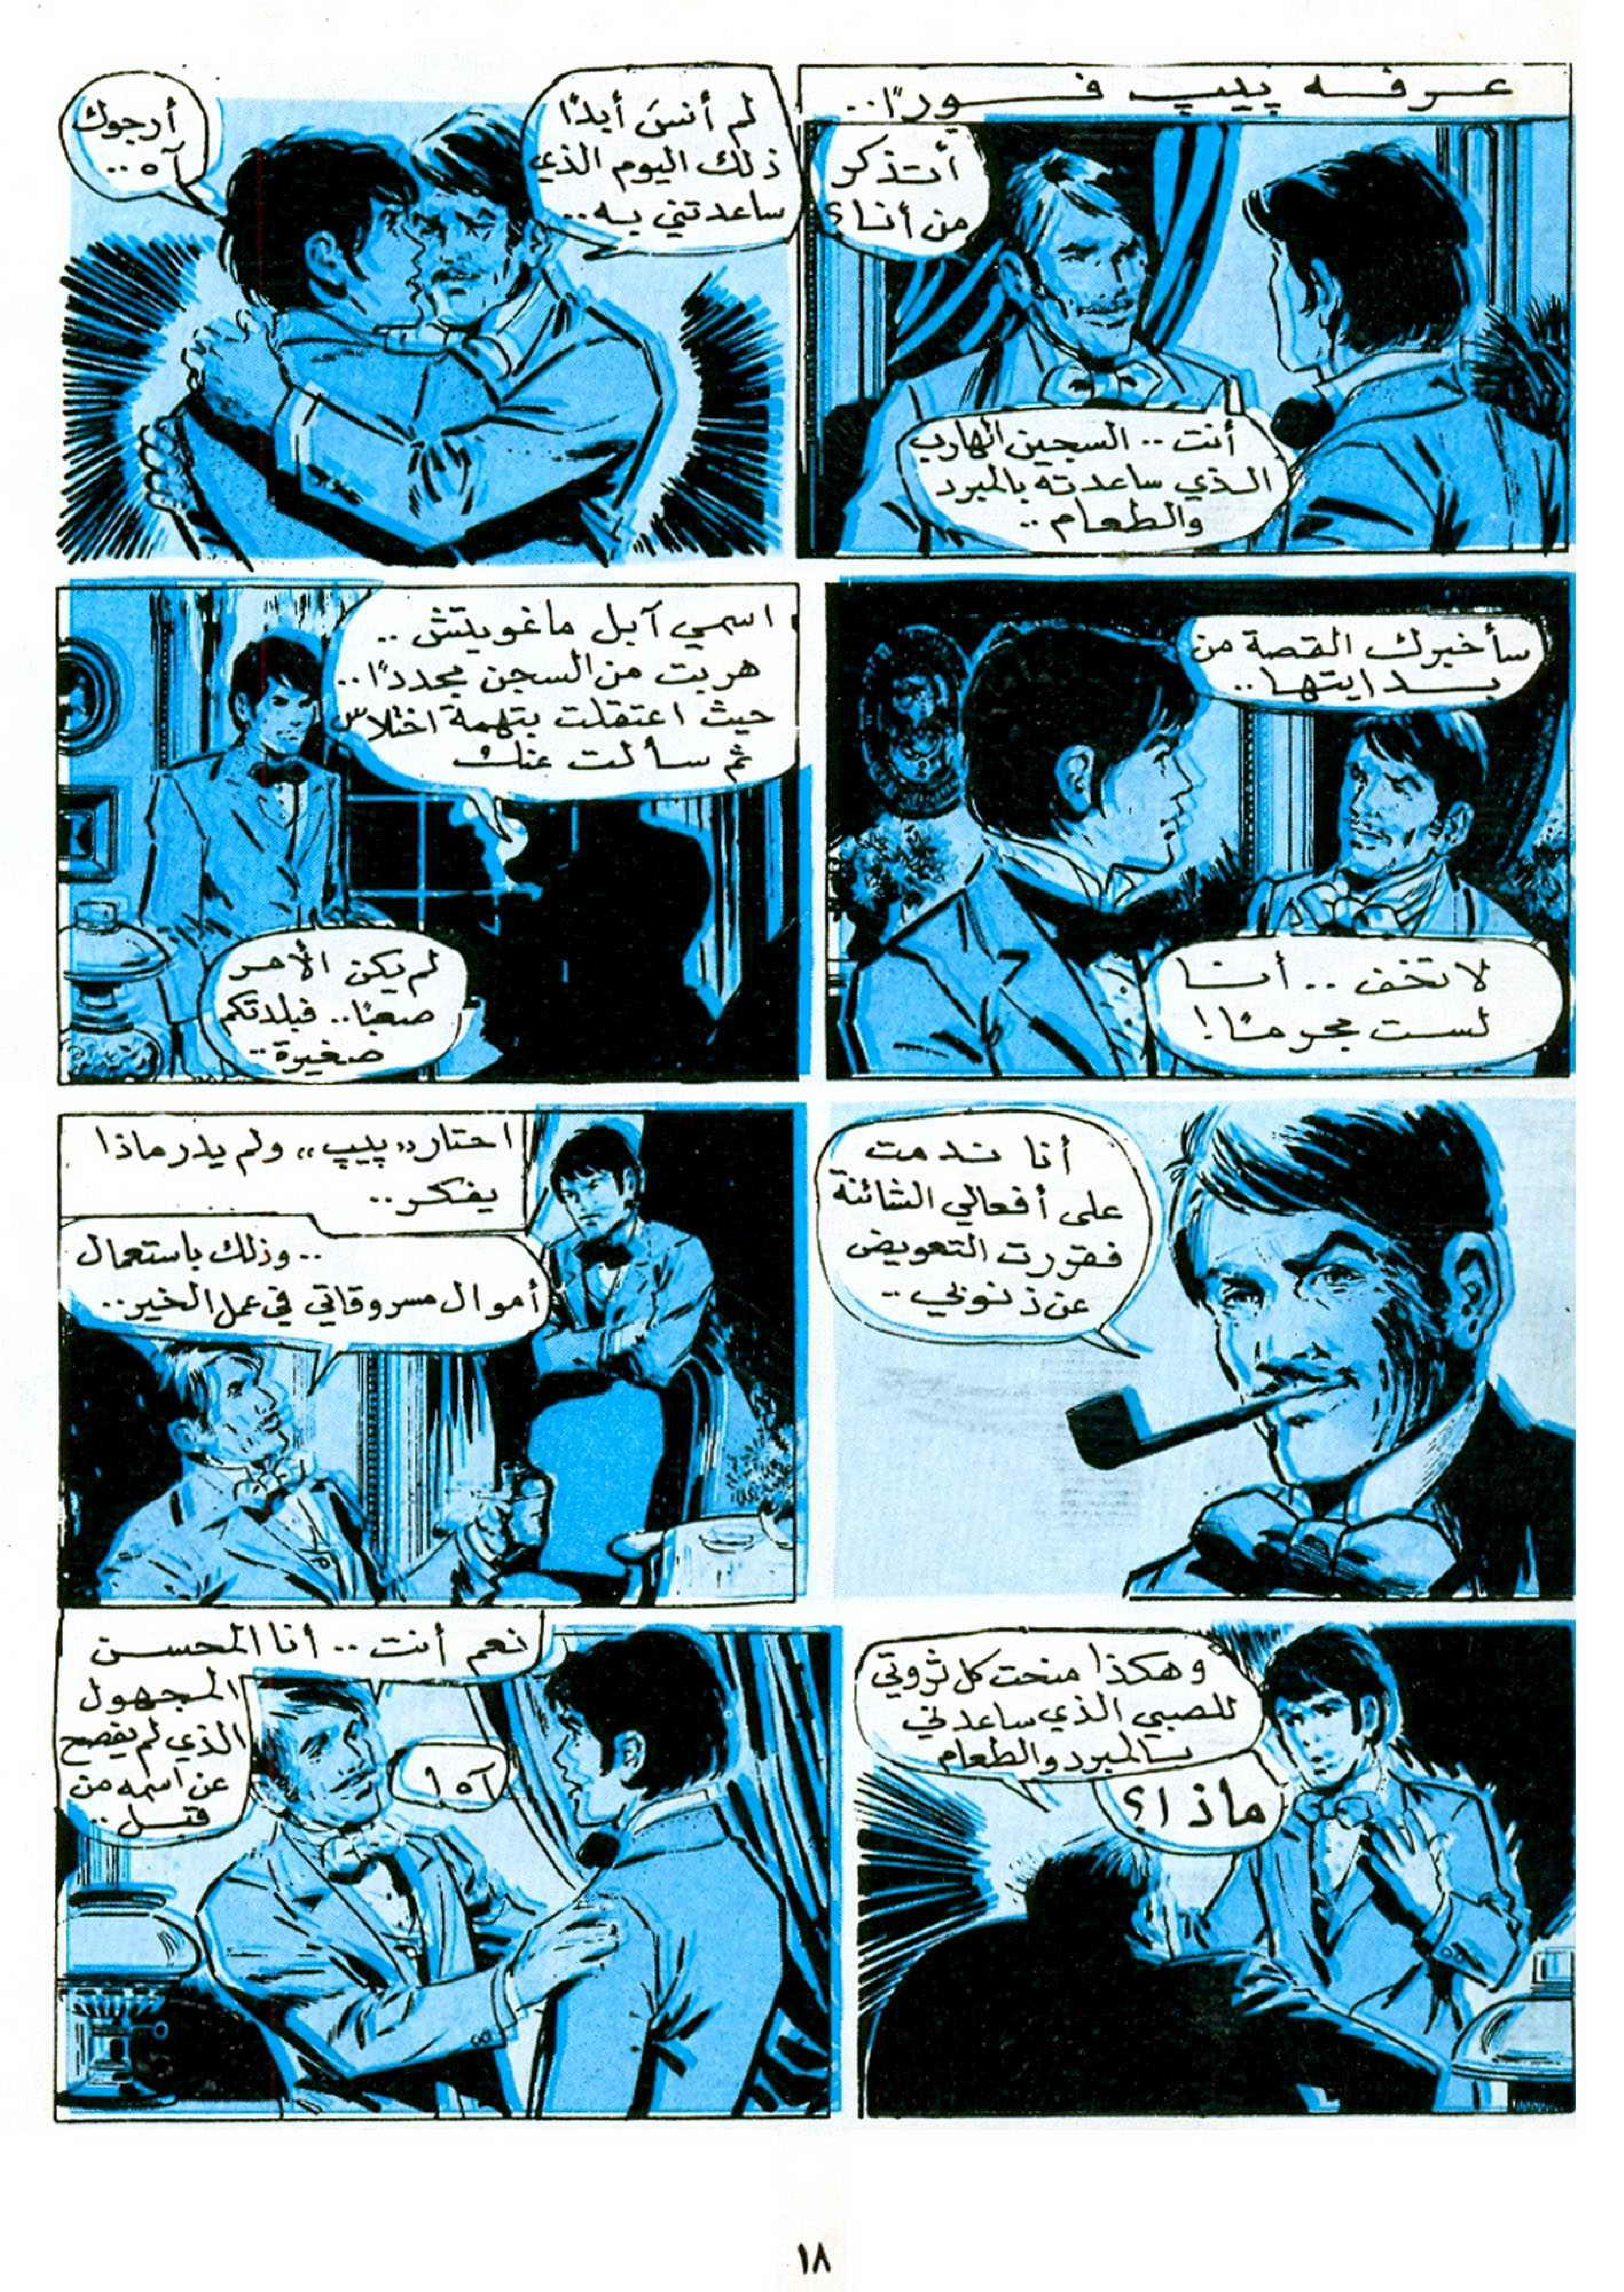 عرفه پيپ فورًا..
أتذكر
من أنا؟
أنت .. السجين الهارب
الذي ساعدته بالمبرد
والطعام ..
لم أنسَ أبدًا
ذلك اليوم الذي
ساعدتني به..
أرجوك
آه ..
سأخبرك القصة من
بدايتها..
لا تخف .. أنا
لست مجرمًا!
اسمي آبل ماغويتش ..
هربت من السجن مجددًا..
حيث اعتقلت بتهمة اختلاس
ثم سألت عنك
لم يكن الأمر
صعبًا.. فبلدتكم
صغيرة..
أنا ندمت
على أفعالي الشائنة
فقررت التعويض
عن ذنوبي ..
احتار «پيپ» ولم يدر ماذا
يفكر..
.. وذلك باستعمال
أموال مسروقاتي في عمل الخير..
وهكذا منحت كل ثروتي
للصبي الذي ساعدني
بالمبرد والطعام
ماذا؟
نعم أنت .. أنا المحسن
المجهول
الذي لم يفصح
عن اسمه من
قبل ..
آه!
١٨